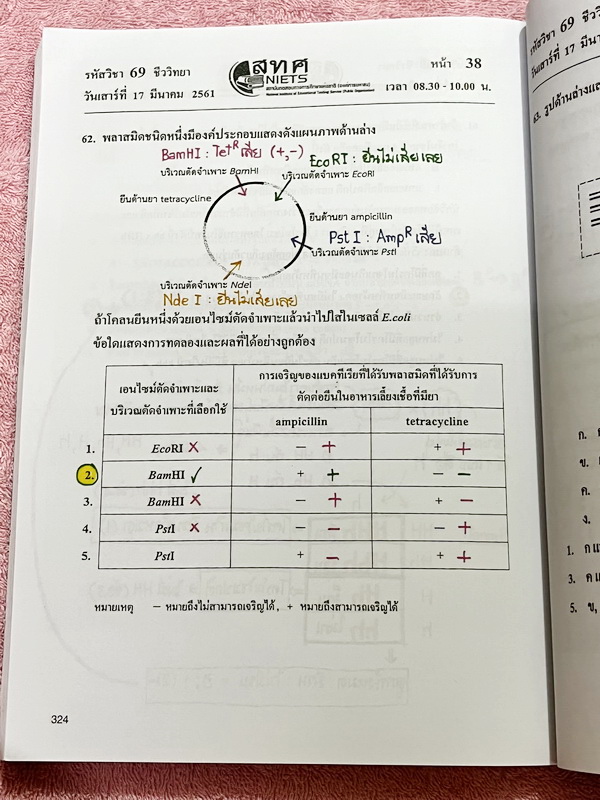 รหัสวิชา 69 ชีววิทยา
วันเสาร์ที่ 17 มีนาคม 2561
สทศ
NIETS
สถาบันทดสอบทางการศึกษาแห่งชาติ (องค์การมหาชน)
National Institute of Educational Testing Service (Public Organization)
หน้า 38
เวลา 08.30 - 10.00 น.
62. พลาสมิดชนิดหนึ่งมีองค์ประกอบแสดงดังแผนภาพด้านล่าง
BamHI : Tet^R เสีย (+,-)
EcoRI : ยีนไม่เสียเลย
บริเวณตัดจำเพาะ BamHI
บริเวณตัดจำเพาะ EcoRI
ยีนต้านยา tetracycline
ยีนต้านยา ampicillin
Pst I : Amp^R เสีย
บริเวณตัดจำเพาะ PstI
บริเวณตัดจำเพาะ NdeI
Nde I : ยีนไม่เสียเลย
ถ้าโคลนยีนหนึ่งด้วยเอนไซม์ตัดจำเพาะแล้วนำไปใส่ในเซลล์ E.coli
ข้อใดแสดงการทดลองและผลที่ได้อย่างถูกต้อง
เอนไซม์ตัดจำเพาะและ
บริเวณตัดจำเพาะที่เลือกใช้
การเจริญของแบคทีเรียที่ได้รับพลาสมิดที่ได้รับการ
ตัดต่อยีนในอาหารเลี้ยงเชื้อที่มียา
ampicillin tetracycline
1. EcoRI ✗ − + + +
2. BamHI ✓ + + − −
3. BamHI ✗ − + + −
4. PstI ✗ − − − +
5. PstI + − + +
หมายเหตุ − หมายถึงไม่สามารถเจริญได้, + หมายถึงสามารถเจริญได้
324
รหัสวิชา 69
วันเสาร์ที่ 17 มีนา
63. รูปด้านล่างแส
ก.
ข.
ค.
ง.
1. ก แ
3. ค แ
5. ข,